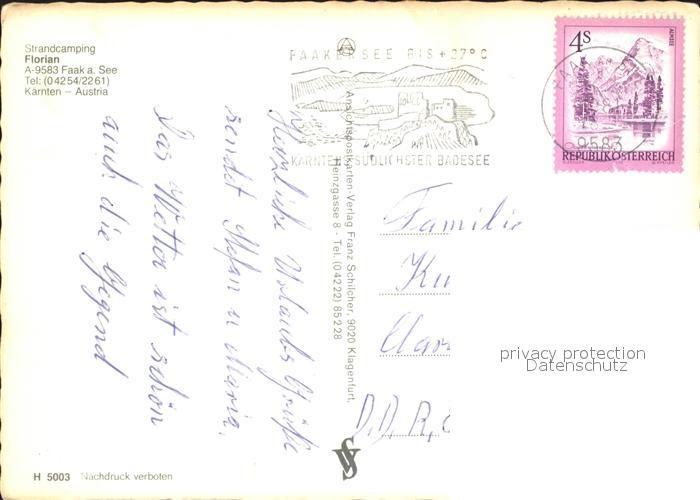 Strandcamping
Florian
A-9583 Faak a. See
Tel: (04254/2261)
Kärnten – Austria
FAAKERSEE BIS +27°C
KÄRNTENS SÜDLICHSTER BADESEE
4S
ALMSEE
9583
REPUBLIK ÖSTERREICH
Herzliche Urlaubsgrüße
sendet Stefan u Maria.
Das Wetter ist schön
auch die Gegend
Ansichtspostkarten-Verlag Franz Schilcher, 9020 Klagenfurt,
Heinzgasse 8 - Tel. (04222) 85228
Familie
Ku
D.D.R.
privacy protection
Datenschutz
H 5003 Nachdruck verboten